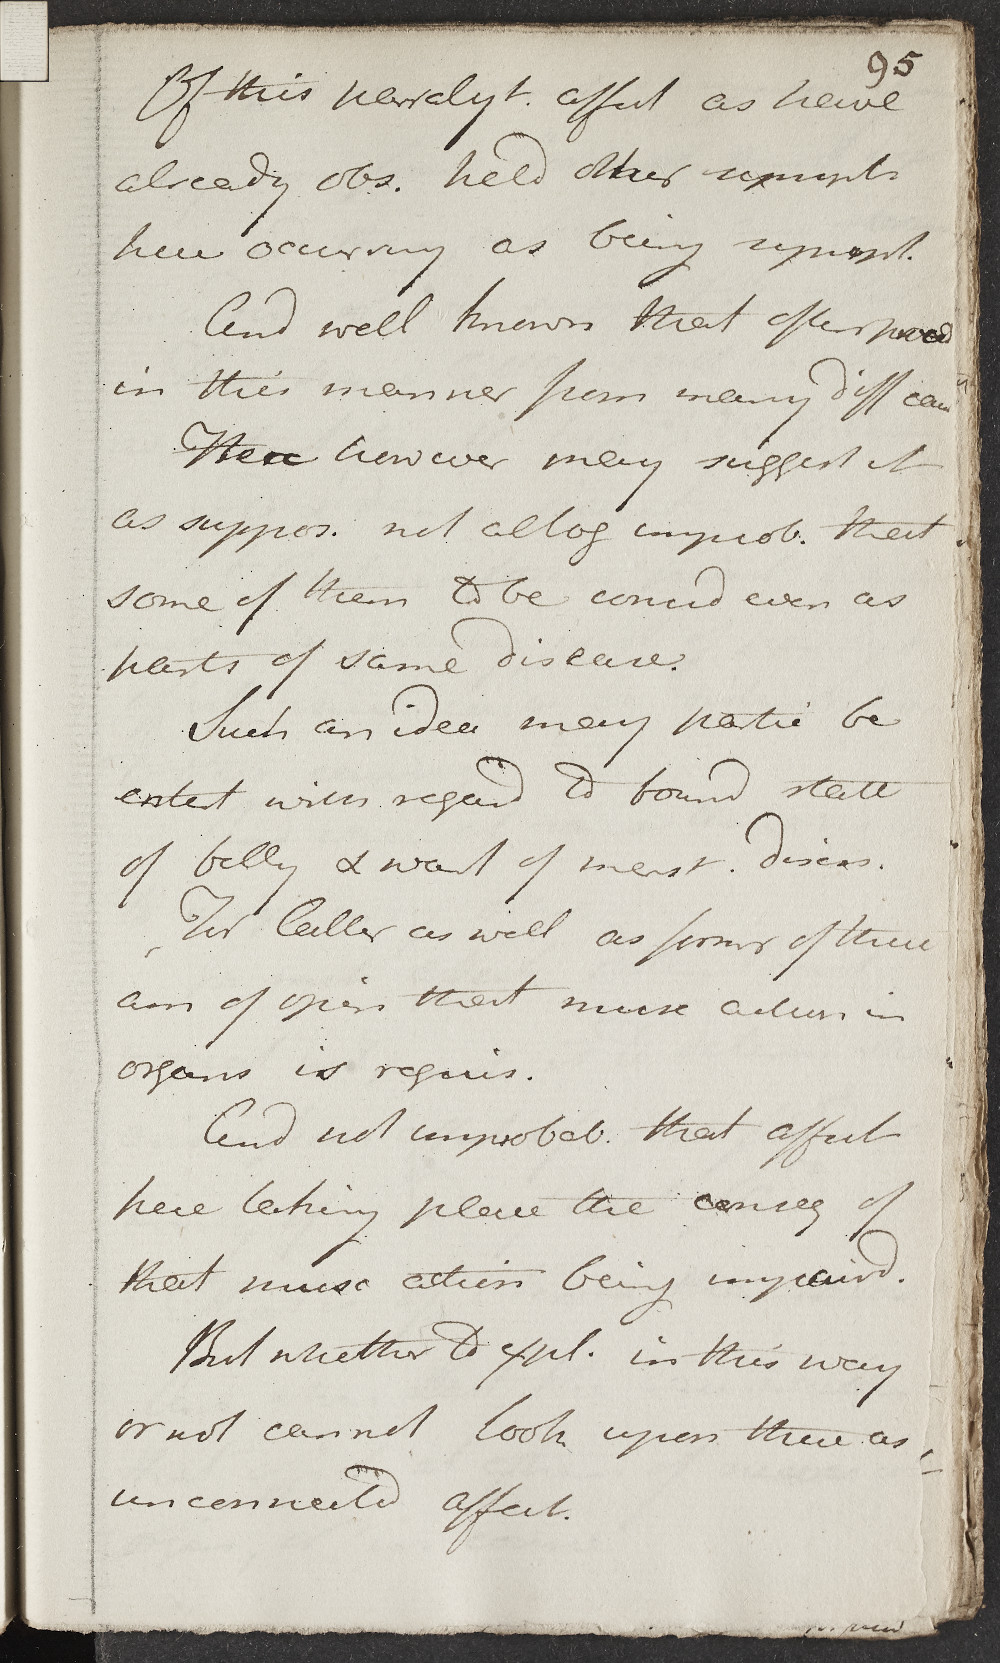 95
Of this paralyt. affect as have
already obs. held other sympts
here occurring as being sympt.
And well known that often prod
in this manner from many diff cau
There however may suggest it
as suppos. not altog improb. that
some of them to be consid even as
parts of same disease.
Such an idea may partic be
entert with regard to bound state
of belly & want of menst. discas.
For latter as well as former of these
am of opin that musc action in
organs is requis.
And not improbab. that affect
here taking place the conseq of
that musc action being impaird.
But whether to expl. in this way
or not cannot look upon these as
unconnected affect.